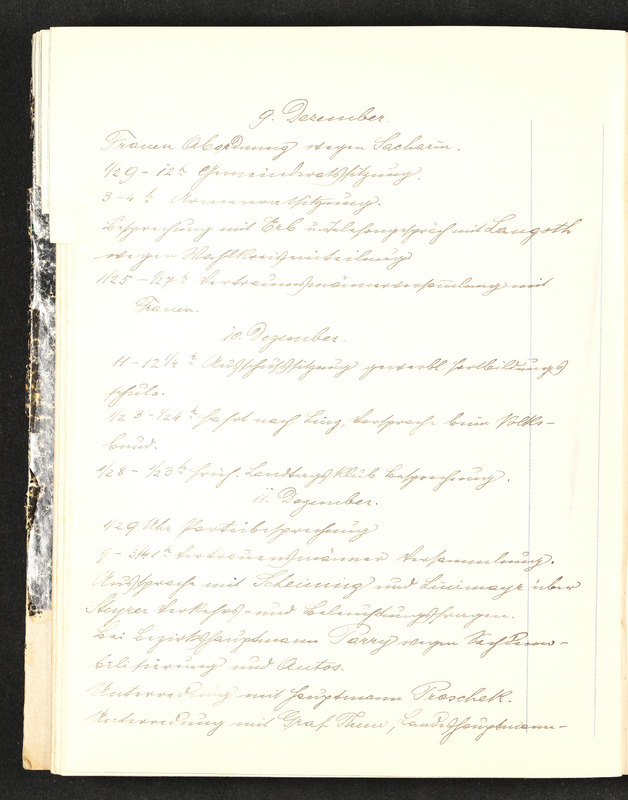 9. Dezember.
Frauen Abordnung wegen Sacharin.
1/2 9 - 12 h Gemeinderatssitzung.
3 - 4 h Armenratsitzung.
Besprechung mit Erb u. Telefongespräch mit Langoth
wegen Wahlkreiseinteilung
1/2 5 - 1/2 7 h Vertrauensmännerversammlung mit
Frauen.
10. Dezember.
11 - 12 1/4 h Ausschußsitzung gewerbl. Fortbildungs
schule.
1/2 3 - 1/2 4 h Fahrt nach Linz, Vorsprache beim Volks-
bund.
1/2 8 - 1/2 3 h früh. Landtagsklub Besprechung.
11. Dezember.
1/2 9 Uhr Parteibesprechung
9 - 3/4 1 h Vertrauensmänner Versammlung.
Aussprache mit und über
Steyrer Verkehrs- und Beleuchtungsfragen.
Bei Bezirkshauptmann Parry wegen Sachdemo-
bilisierung und Autos.
Unterredung mit Hauptmann Proschek.
Unterredung mit Graf Thun, Landeshauptmann-